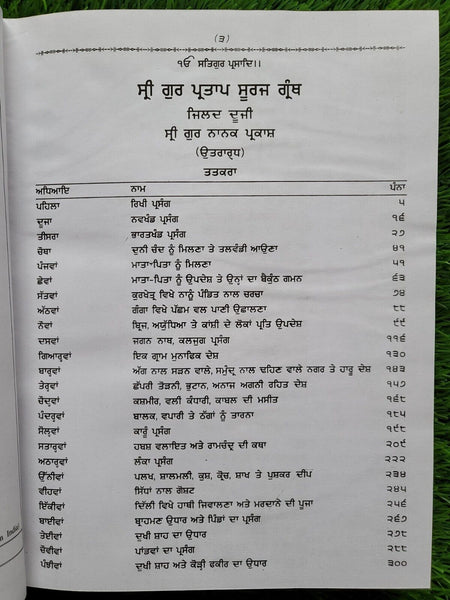 (੩)
ੴ ਸਤਿਗੁਰ ਪ੍ਰਸਾਦਿ।।
ਸ੍ਰੀ ਗੁਰ ਪ੍ਰਤਾਪ ਸੂਰਜ ਗ੍ਰੰਥ
ਜਿਲਦ ਦੂਜੀ
ਸ੍ਰੀ ਗੁਰ ਨਾਨਕ ਪ੍ਰਕਾਸ਼
(ਉਤਰਾਰ੍ਧ)
ਤਤਕਰਾ
ਅਧਿਆਇ ਨਾਮ ਪੰਨਾ
ਪਹਿਲਾ ਰਿਖੀ ਪ੍ਰਸੰਗ ੫
ਦੂਜਾ ਨਵਖੰਡ ਪ੍ਰਸੰਗ ੧੬
ਤੀਸਰਾ ਭਾਰਤਖੰਡ ਪ੍ਰਸੰਗ ੨੭
ਚੌਥਾ ਦੁਨੀ ਚੰਦ ਨੂੰ ਮਿਲਣਾ ਤੇ ਤਲਵੰਡੀ ਆਉਣਾ ੪੧
ਪੰਜਵਾਂ ਮਾਤਾ-ਪਿਤਾ ਨੂੰ ਮਿਲਣਾ ੫੧
ਛੇਵਾਂ ਮਾਤਾ-ਪਿਤਾ ਨੂੰ ਉਪਦੇਸ਼ ਤੇ ਉਨ੍ਹਾਂ ਦਾ ਬੈਕੁੰਠ ਗਮਨ ੬੩
ਸੱਤਵਾਂ ਕੁਰਖੇਤ੍ਰ ਵਿਖੇ ਨਾਨੂੰ ਪੰਡਿਤ ਨਾਲ ਚਰਚਾ ੭੪
ਅੱਠਵਾਂ ਗੰਗਾ ਵਿਖੇ ਪੱਛਮ ਵਲ ਪਾਣੀ ਉਛਾਲਣਾ ੮੮
ਨੌਵਾਂ ਬ੍ਰਿਜ, ਅਯੁੱਧਿਆ ਤੇ ਕਾਂਸ਼ੀ ਦੇ ਲੋਕਾਂ ਪ੍ਰਤਿ ਉਪਦੇਸ਼ ੯੯
ਦਸਵਾਂ ਜਗਨ ਨਾਥ, ਕਲਜੁਗ ਪ੍ਰਸੰਗ ੧੧੬
ਗਿਆਰ੍ਹਵਾਂ ਇਕ ਗ੍ਰਾਮ ਮੁਨਾਫਿਕ ਦੇਸ਼ ੧੩੦
ਬਾਰ੍ਹਵਾਂ ਅੱਗ ਨਾਲ ਸੜਨ ਵਾਲੇ, ਸਮੁੰਦ੍ਰ ਨਾਲ ਢਹਿਣ ਵਾਲੇ ਨਗਰ ਤੇ ਹਾਰੂ ਦੇਸ਼ ੧੪੩
ਤੇਰ੍ਹਵਾਂ ਛੱਪਰੀ ਤੋੜਨੀ, ਭੁਟਾਨ, ਅਨਾਜ ਅਗਨੀ ਰਹਿਤ ਦੇਸ਼ ੧੫੭
ਚੌਦ੍ਹਵਾਂ ਕਸ਼ਮੀਰ, ਵਲੀ ਕੰਧਾਰੀ, ਕਾਬਲ ਦੀ ਮਸੀਤ ੧੬੮
ਪੰਦਰ੍ਹਵਾਂ ਬਾਲਕ, ਵਪਾਰੀ ਤੇ ਠੱਗਾਂ ਨੂੰ ਤਾਰਨਾ ੧੮੫
ਸੋਲ੍ਹਵਾਂ ਕਾਰੂੰ ਪ੍ਰਸੰਗ ੧੯੮
ਸਤਾਰ੍ਹਵਾਂ ਹਬਸ਼ ਵਲਾਇਤ ਅਤੇ ਰਾਮਚੰਦ੍ਰ ਦੀ ਕਥਾ ੨੦੯
ਅਠਾਰ੍ਹਵਾਂ ਲੰਕਾ ਪ੍ਰਸੰਗ ੨੨੨
ਉੱਨੀਵਾਂ ਪਲਖ, ਸ਼ਾਲਮਲੀ, ਕੁਸ਼, ਕ੍ਰੋਚ, ਸ਼ਾਖ ਤੇ ਪੁਸ਼ਕਰ ਦੀਪ ੨੩੪
ਵੀਹਵਾਂ ਸਿੱਧਾਂ ਨਾਲ ਗੋਸ਼ਟ ੨੪੫
ਇੱਕੀਵਾਂ ਦਿੱਲੀ ਵਿਖੇ ਹਾਥੀ ਜਿਵਾਲਣਾ ਅਤੇ ਮਰਦਾਨੇ ਦੀ ਪੂਜਾ ੨੫੬
ਬਾਈਵਾਂ ਬ੍ਰਾਹਮਣ ਉਧਾਰ ਅਤੇ ਪਿੰਡਾਂ ਦਾ ਪ੍ਰਸੰਗ ੨੬੭
ਤੇਈਵਾਂ ਦੁਖੀ ਸ਼ਾਹ ਦਾ ਉਧਾਰ ੨੭੮
ਚੌਵੀਵਾਂ ਪਾਂਡਵਾਂ ਦਾ ਪ੍ਰਸੰਗ ੨੮੮
ਪੰਝੀਵਾਂ ਦੁਖੀ ਸ਼ਾਹ ਅਤੇ ਕੋੜ੍ਹੀ ਫਕੀਰ ਦਾ ਉਧਾਰ ੩੦੦